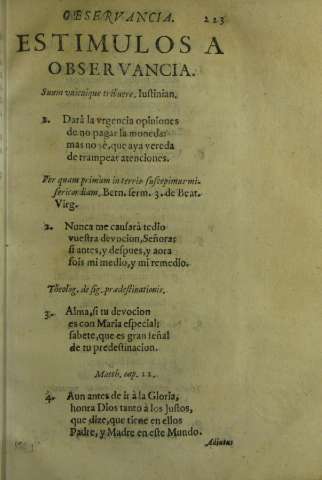 OBSERVANCIA. 223
ESTIMULOS A
OBSERVANCIA.
Suum vnicuique tribuere. Iustinian.
1. Darà la vrgencia opiniones
de no pagar la moneda:
mas no sè, que aya vereda
de trampear atenciones.
Per quam primùm in terris suscepimus mi-
sericordiam, Bern. serm. 3. de Beat.
Virg.
2. Nunca me causarà tedio
vuestra devocion, Señora;
si antes, y despues, y aora
sois mi medio, y mi remedio.
Theolog. de sig. prædestinationis.
3. Alma, si tu devocion
es con Maria especial;
sabete, que es gran señal
de tu predestinacion.
Matth. cap. 12.
4. Aun antes de ir à la Gloria,
honra Dios tanto à los Justos,
que dize, que tiene en ellos
Padre, y Madre en este Mundo.